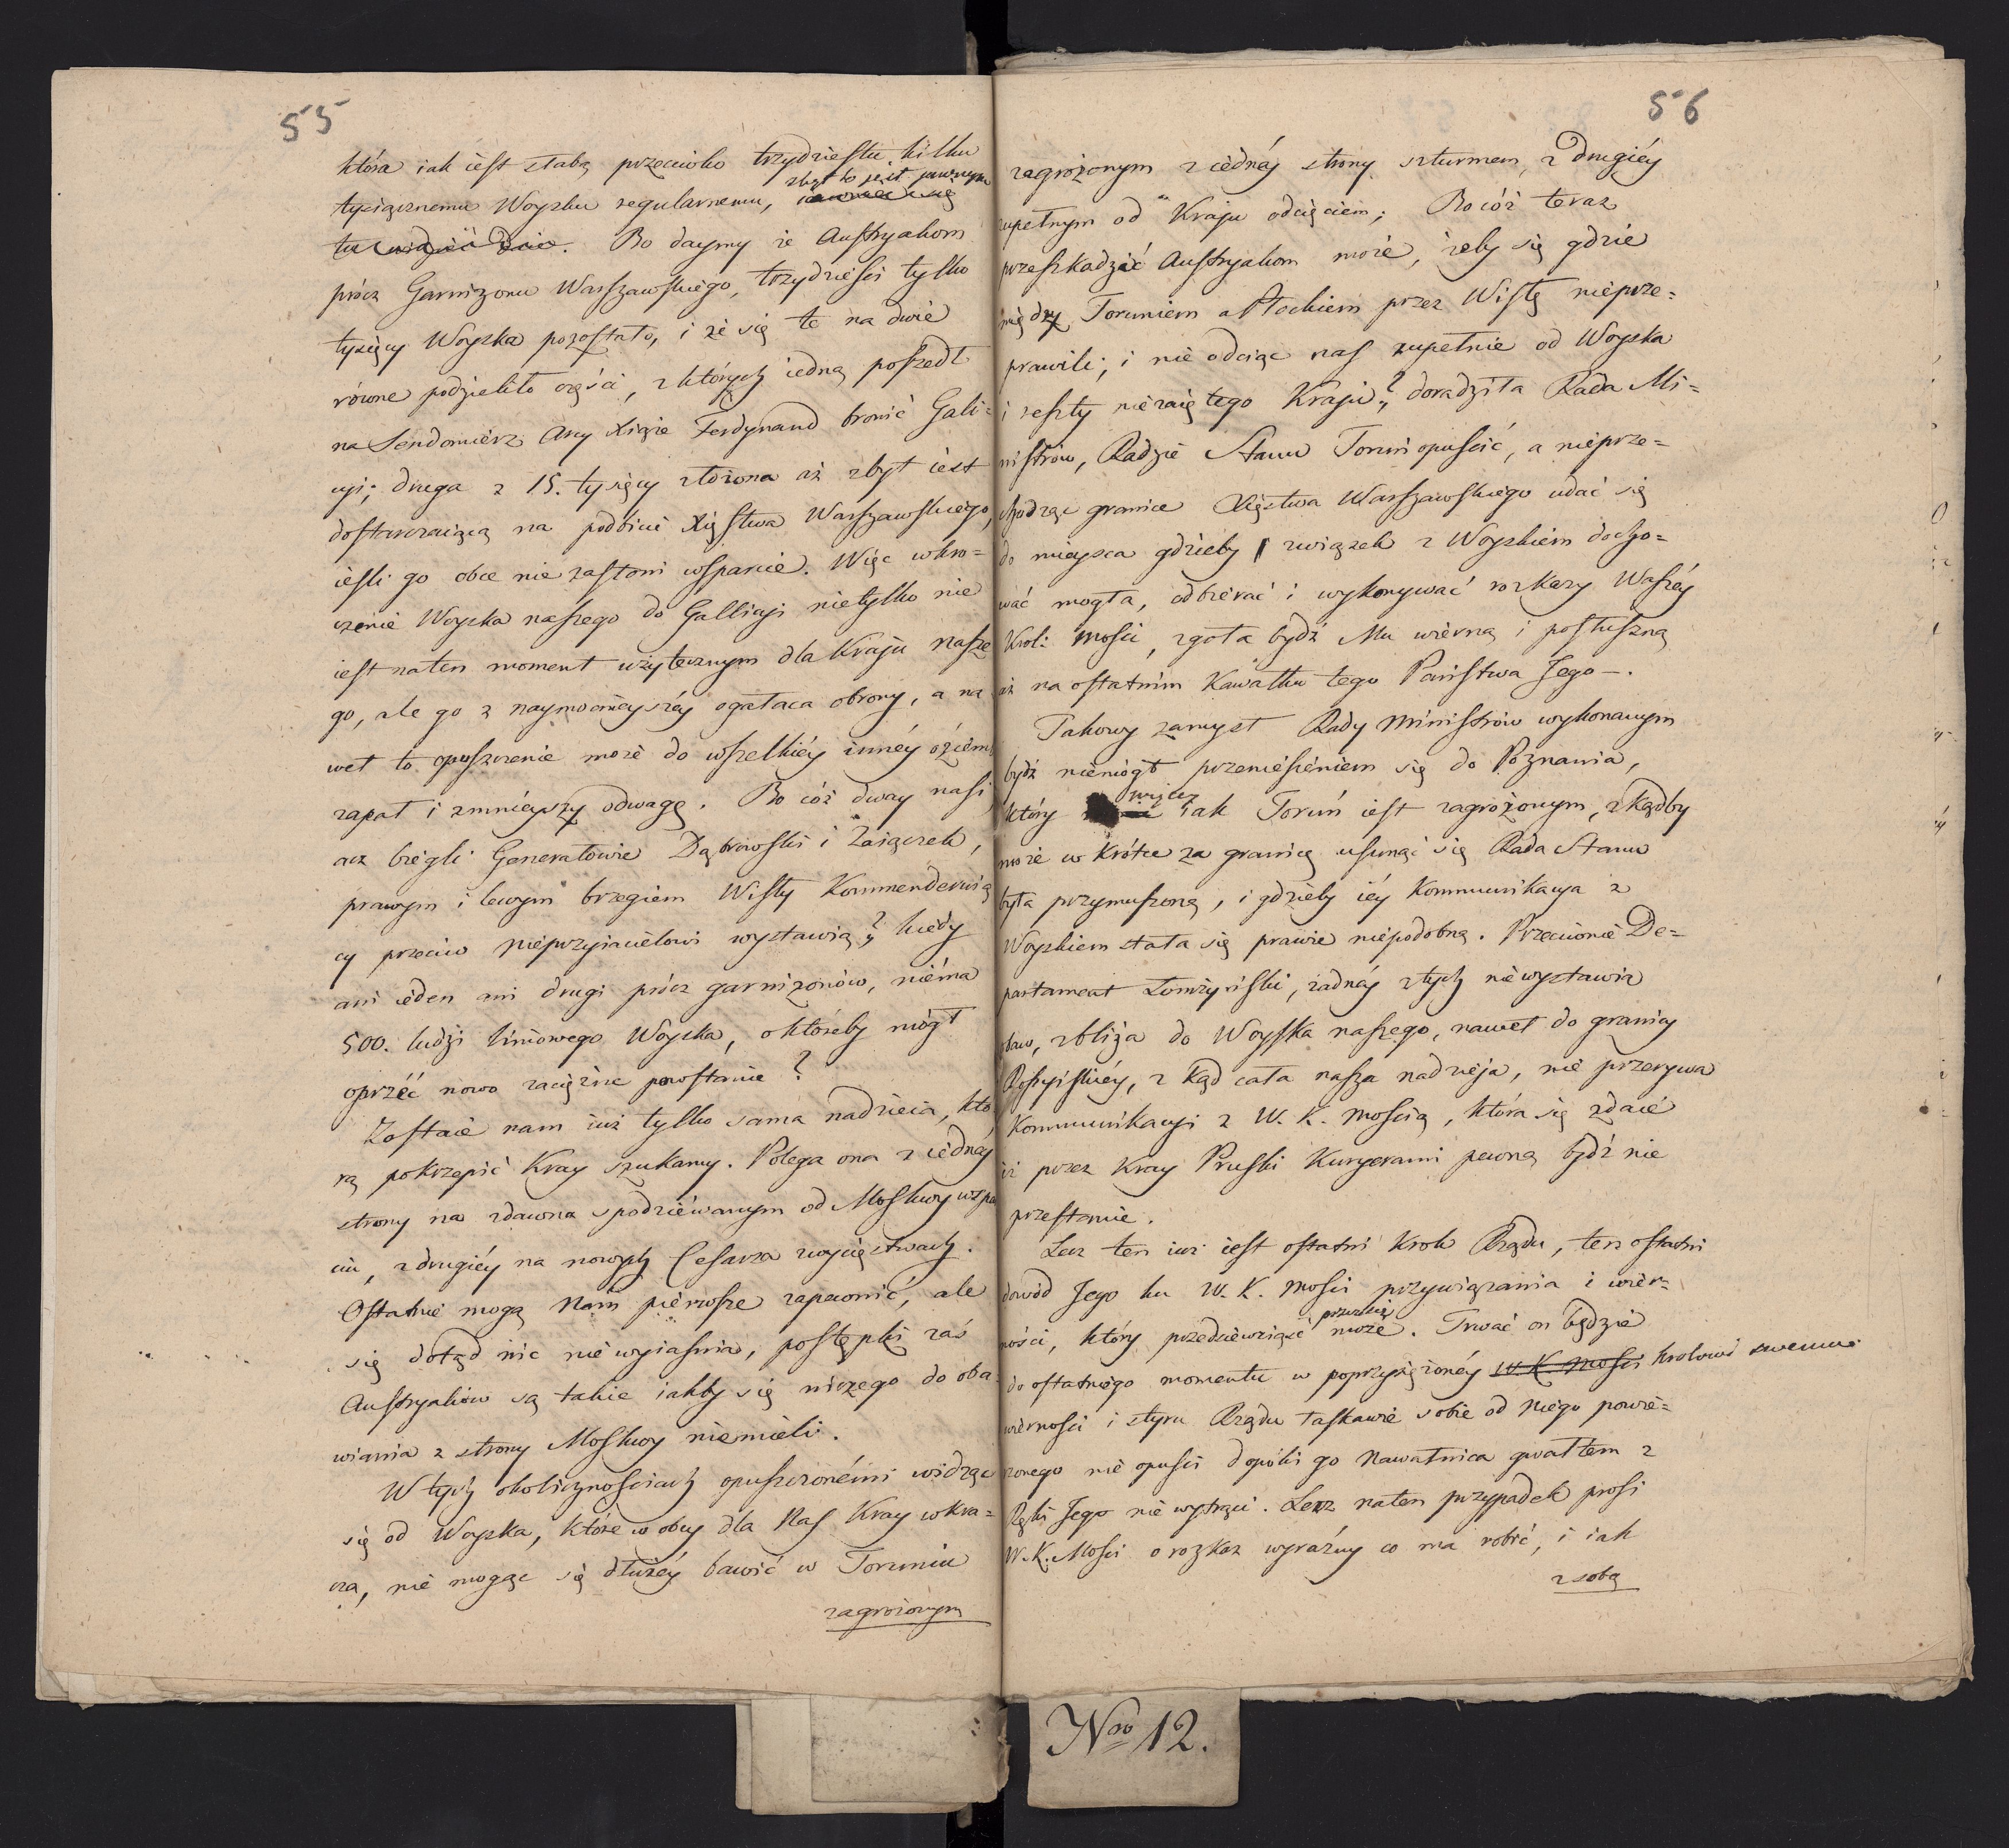 55
która iak iest słabą przeciwko trzydziestu kilku
zbyt to jest jawnym
tysiącznemu Woysku regularnemu,
tu widzieć daie. Bo daymy że Austryakom
prócz Garnizonu Warszawskiego, trzydzieści tylko
tysięcy Woyska pozostało, i że się te na dwie
równe podzieliło części, z których iedną poszedł
na Sendomierz Arcy Xiąże Ferdynand bronić Gali=
cyi; druga z 15. tysięcy złożona aż zbyt iest
dostarczaiącą na podbicie Xięstwa Warszawskiego,
iesli go obce nie zasłoni wsparcie. Więc wkro=
czenie Woyska naszego do Gallicyi nietylko nie
iest naten moment użytecznym dla Kraju nasze
go, ale go z naymocnieyszéy ogałaca obrony, a na
wet to opuszczenie może do wszelkiéy innéy oziémb
zapał i zmnieyszy odwagę. Bo cóż dway nasi
acz biegli Generałowie Dąbrowski i Zaiączek,
prawym i lewym brzegiem Wisły Kommenderuią
cy przeciw nieprzyiacielowi wystawią? kiedy
ani ieden ani drugi prócz garnizonów, niéma
500. ludzi liniowego Woyska, o któreby mógł
oprzéć nowo zaciężne powstanie?
Zostaie nam iuż tylko sama nadzieia, któ
rą pokrzepić Kray szukamy. Polega ona z iednéy
strony na zdawna spodziéwanym od Moskwy wspar
ciu, z drugiéy na nowych Cesarza zwycięstwach.
Ostatnie mogą Nam piérwsze zapewnić, ale
się dotąd nic nie wyiasnia, postępki zaś
Austryaków są takie iakby się niczego do oba
wiania z strony Moskwy niemieli.
W tych okolicznosciach opuszczonémi widząc
się od Woyska, które w obcy dla Nas Kray wkra=
cza, nie mogąc się dłużéy bawić w Toruniu
zagrożonym
56
zagrożonym z iednéy strony szturmem, z drugiéy
zupełnym od Kraju odcięciem; Bo cóż teraz
przeszkadzać Austryakom może, żeby się gdzie
między Toruniem a Płockiem przez Wisłę nieprze=
prawili; i nie odciąć nas zupełnie od Woyska
i reszty niezaiętego Kraju? doradziła Rada Mi=
nistrów, Radzie Stanu Toruń opuścić, a nieprze=
chodząc granice Xięstwa Warszawskiego udać się
do mieysca gdzieby związek z Woyskiem docho=
wać mogła, odbierać i wykonywać rozkazy Waszéy
Król: Mości, zgoła bydź Mu wierną i posłuszną
aż na ostatnim Kawałku tego Państwa Jego —.
Takowy zamysł Rady Ministrów wykonanym
bydź niemógł przeniesieniem się do Poznania,
więcéy
który iak Toruń iest zagrożonym, zkądby
może w krótce za granicę usunąć się Rada Stanu
była przymuszoną, i gdzieby iéy Kommunikacya z
Woyskiem stała się prawie niepodobną. Przeciwnie De=
partament Łomżyński, żadnéy z tych niewystawia
obaw, zbliża do Woyska naszego, nawet do granicy
Rossyiskiéy, z kąd cała nasza nadzieja, nie przerywa
Kommunikacyi z W. K. Mością, która się zdaié
iż przez Kray Pruski Kuryerami pewną bydź nie
przestanie.
Lecz ten iuż iest ostatni krok Rządu, ten ostatni
dowód Jego ku W. K. Mości przywiązania i wiér=
ności, który przedsiewziąść może. Trwać on będzie
do ostatniego momentu w poprzysiężonéy W. K. Mości Królowi swemu
wierności i styru Rządu łaskawie sobie od Niego powie=
rzonego nie opuści dopóki go Nawałnica gwałtem z
Ręki Jego nie wytrąci. Lecz naten przypadek prosi
W. K. Mości o rozkaz wyraźny co ma robić, i iak
z sobą
Nro 12.